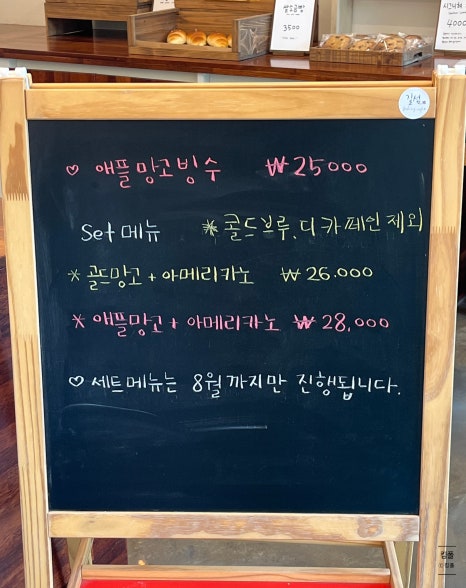 쌀소금빵
3500
4000
♡ 애플망고빙수 ₩25000
Set 메뉴 * 콜드브루, 디카페인 제외
* 골드망고 + 아메리카노 ₩26.000
* 애플망고 + 아메리카노 ₩28,000
♡ 세트메뉴는 8월까지만 진행됩니다.
킴폴